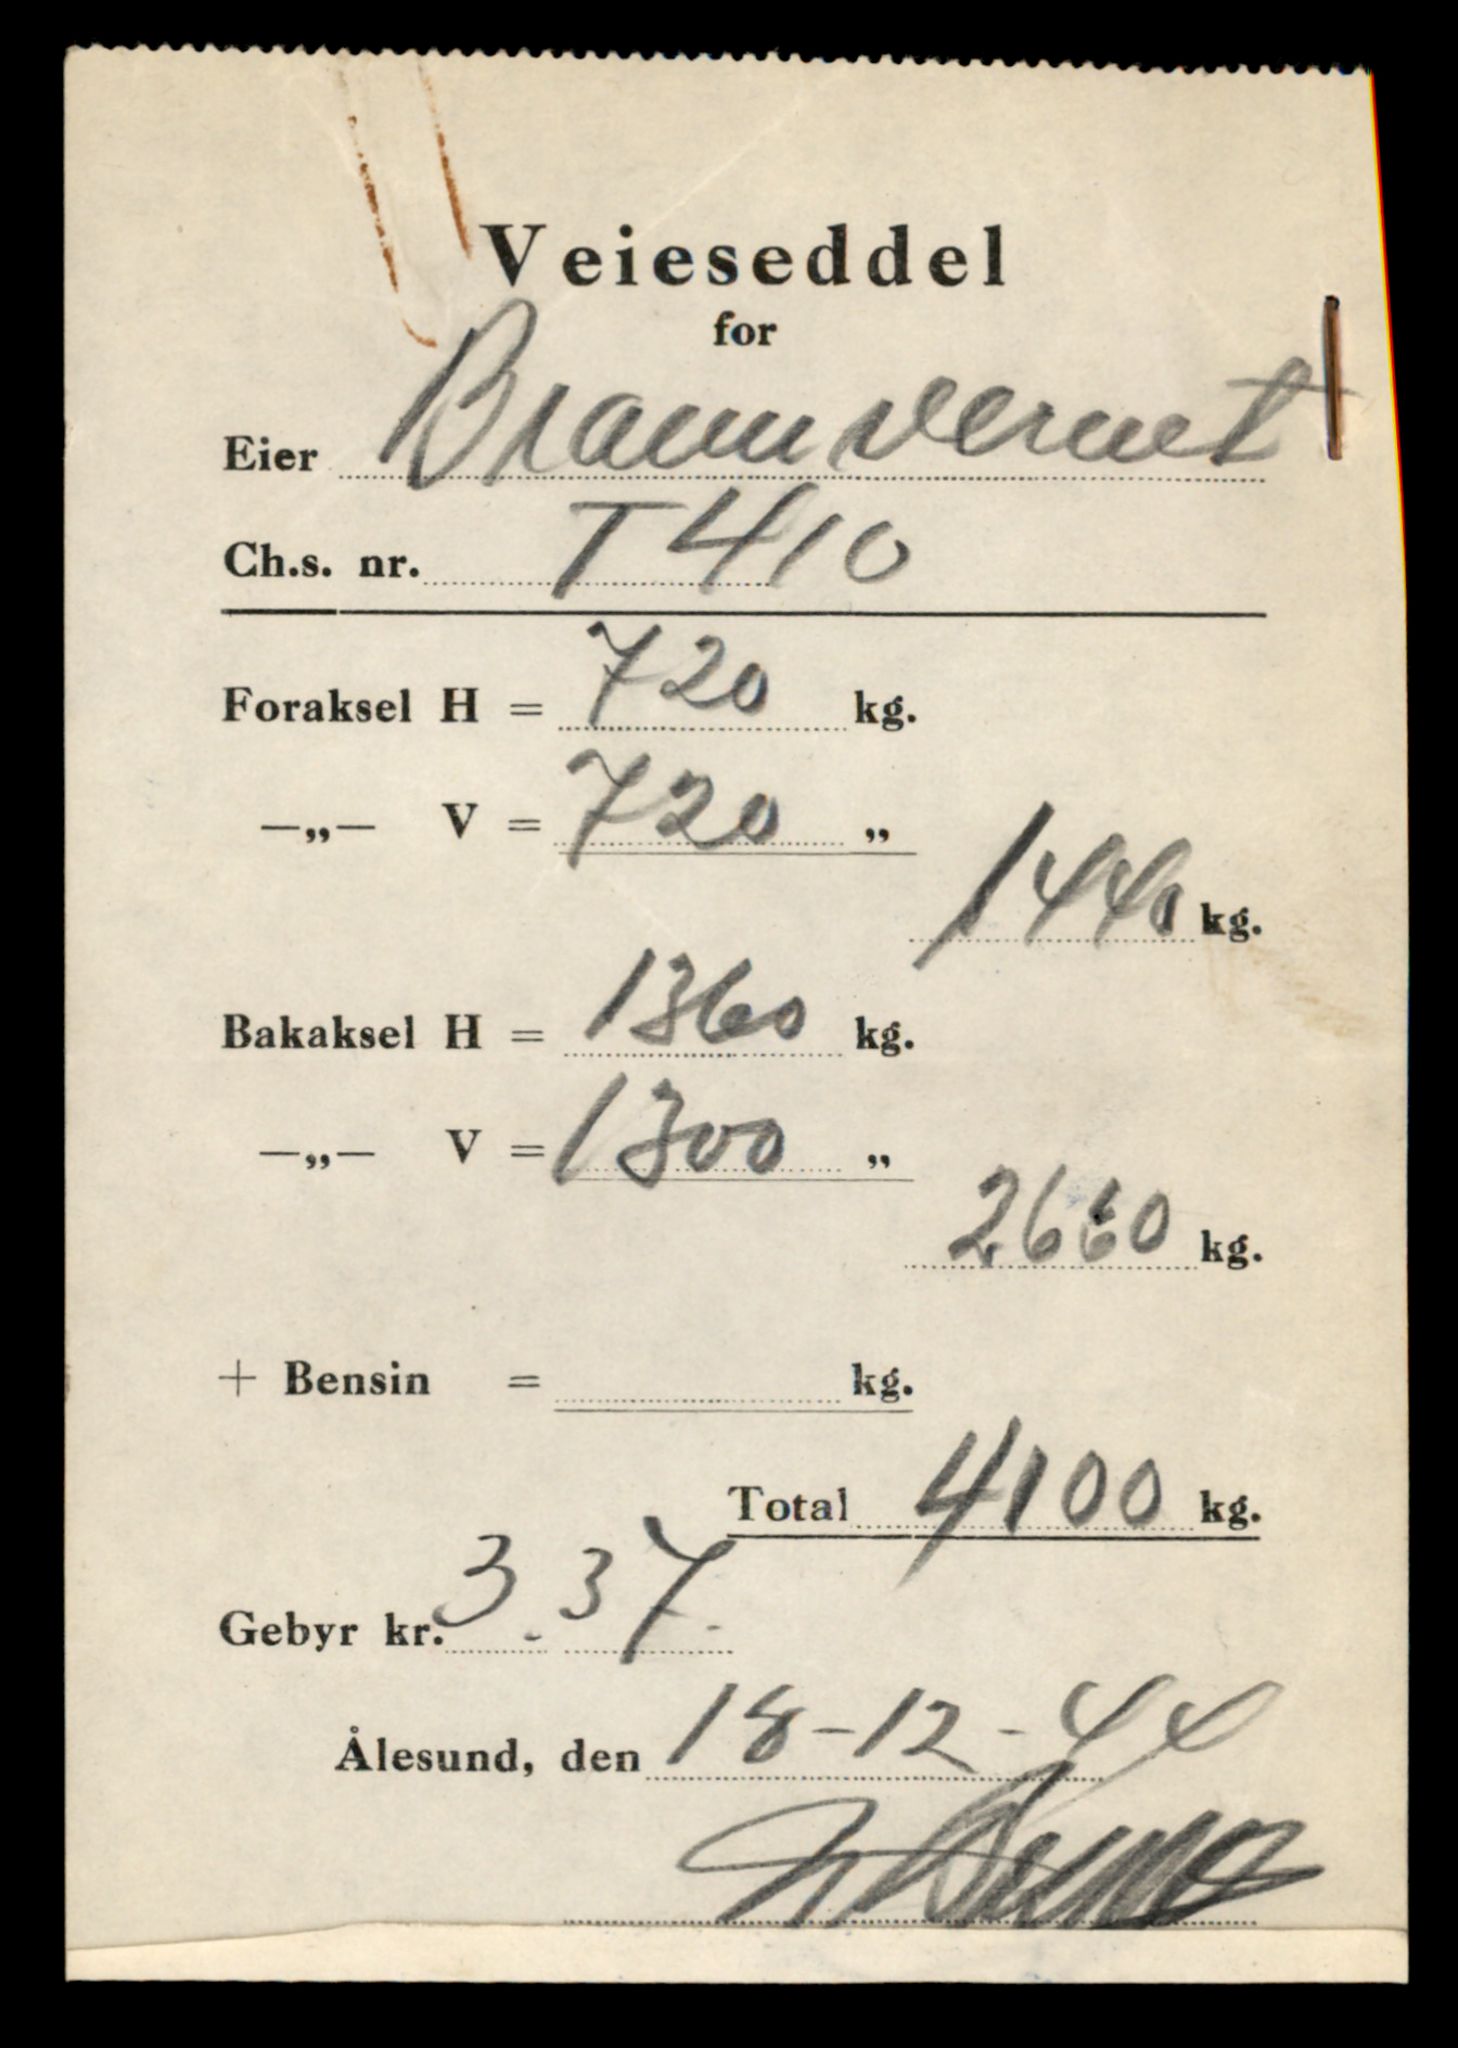 Veieseddel
for
Eier Brannvernet
Ch.s. nr. T 410
Foraksel H = 720 kg.
—„— V = 720 „
1440 kg.
Bakaksel H = 1360 kg.
—„— V = 1300 „
2660 kg.
+ Bensin = kg.
Total 4100 kg.
Gebyr kr. 3.37.
Ålesund, den 18-12-44